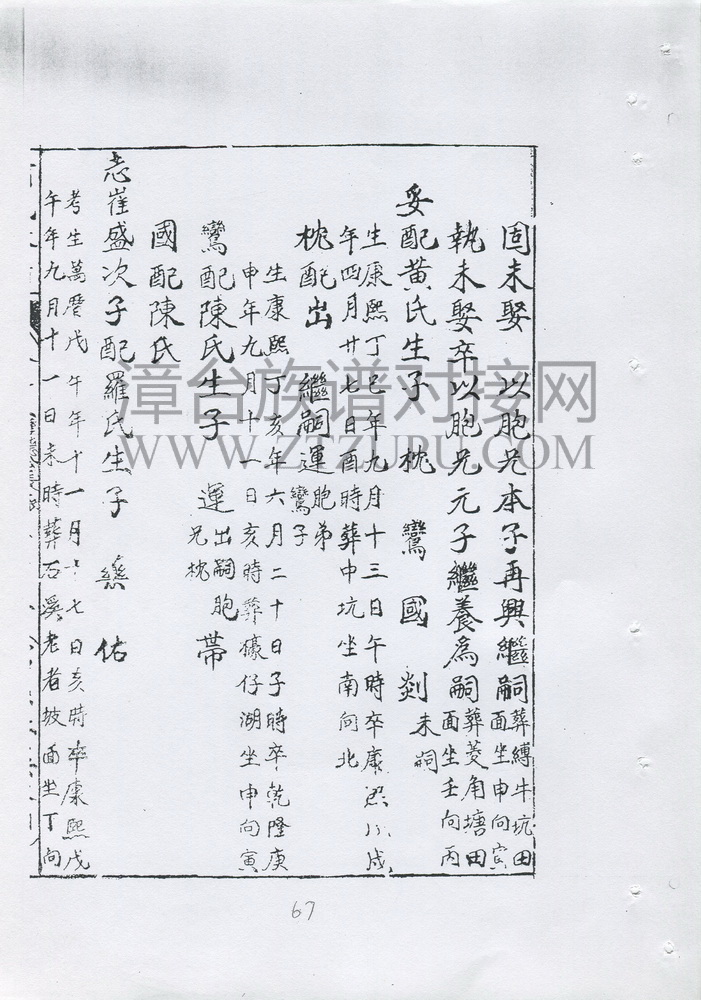 固未娶 以胞兄本子再興繼嗣 葬縛牛坑田
面坐申向寅
執未娶卒以胞兄元子繼養為嗣 葬菱角塘田
面坐壬向丙
妥配黃氏生子 枕 鸞 國 剡 未嗣
生康熙丁巳年九月十三日午時卒康熙
年四月廿七日酉時葬中坑坐南向北
枕配出 繼嗣運 胞弟
鸞子
生康熙丁亥年六月二十日子時卒乾隆庚
申年九月十一日亥時葬礤仔湖坐申向寅
鸞配陳氏生子 運 出嗣胞
兄枕 帶
國配陳氏
志崔盛次子配羅氏生子 佑
考生萬曆戊午年十一月十七日亥時卒康熙戊
午年九月十一日未時葬石溪老者坡面坐丁向
漳台族谱对接网
WWW.ZTZUPU.COM
67